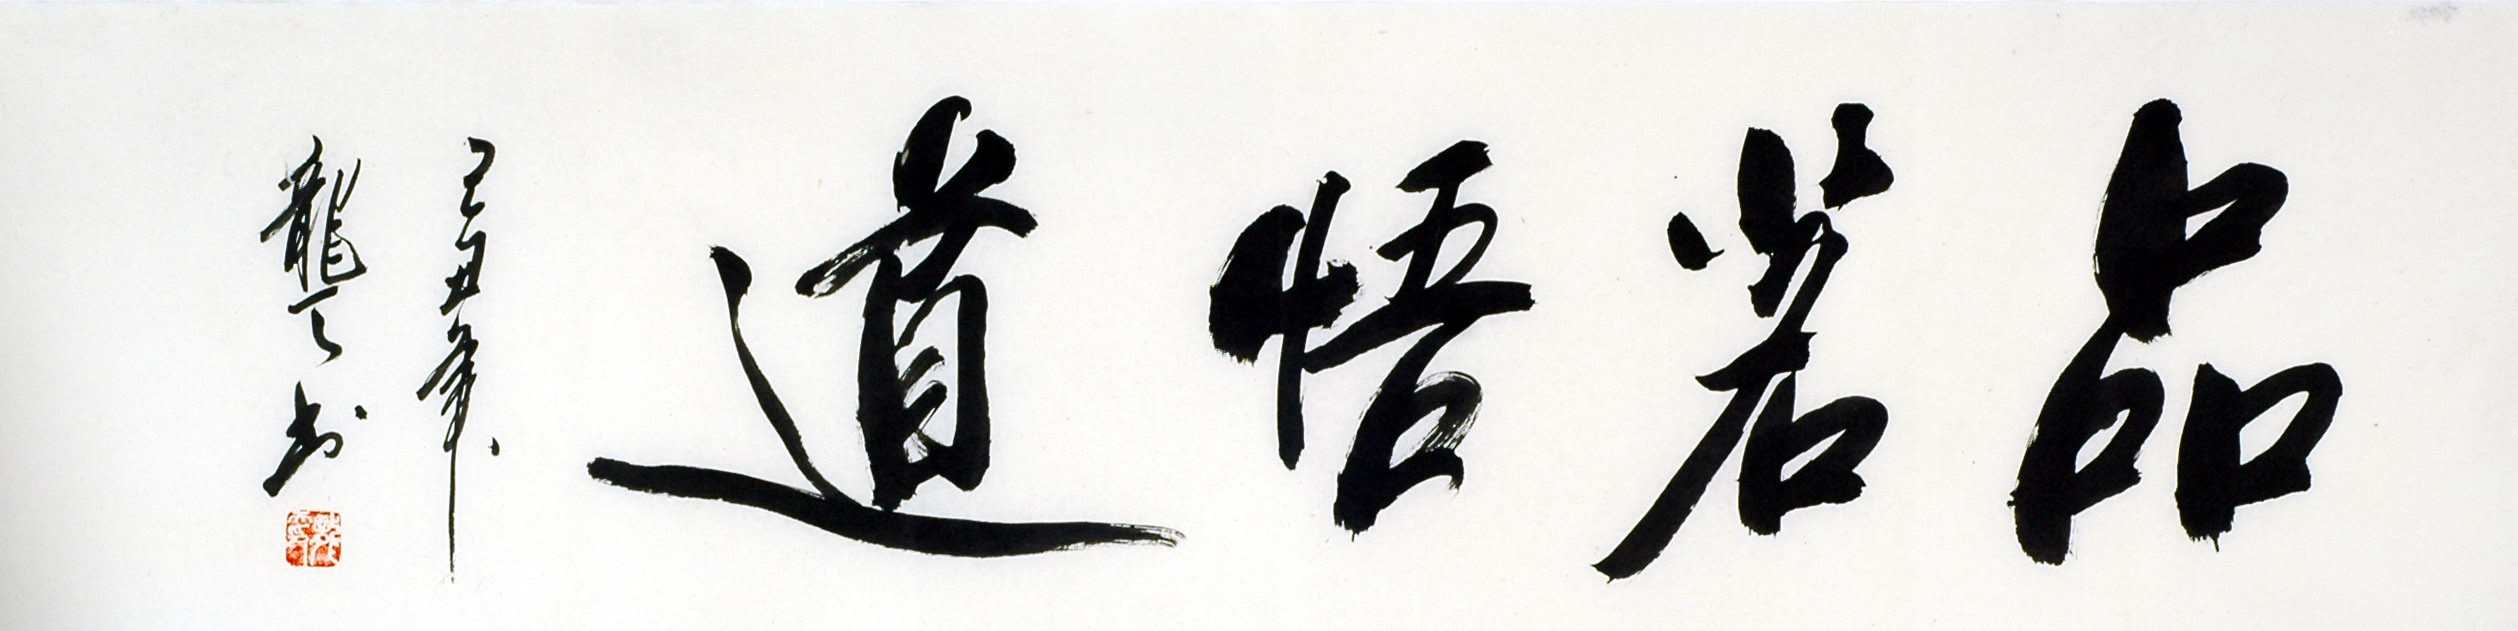 品茗悟道
己丑年
龍云书